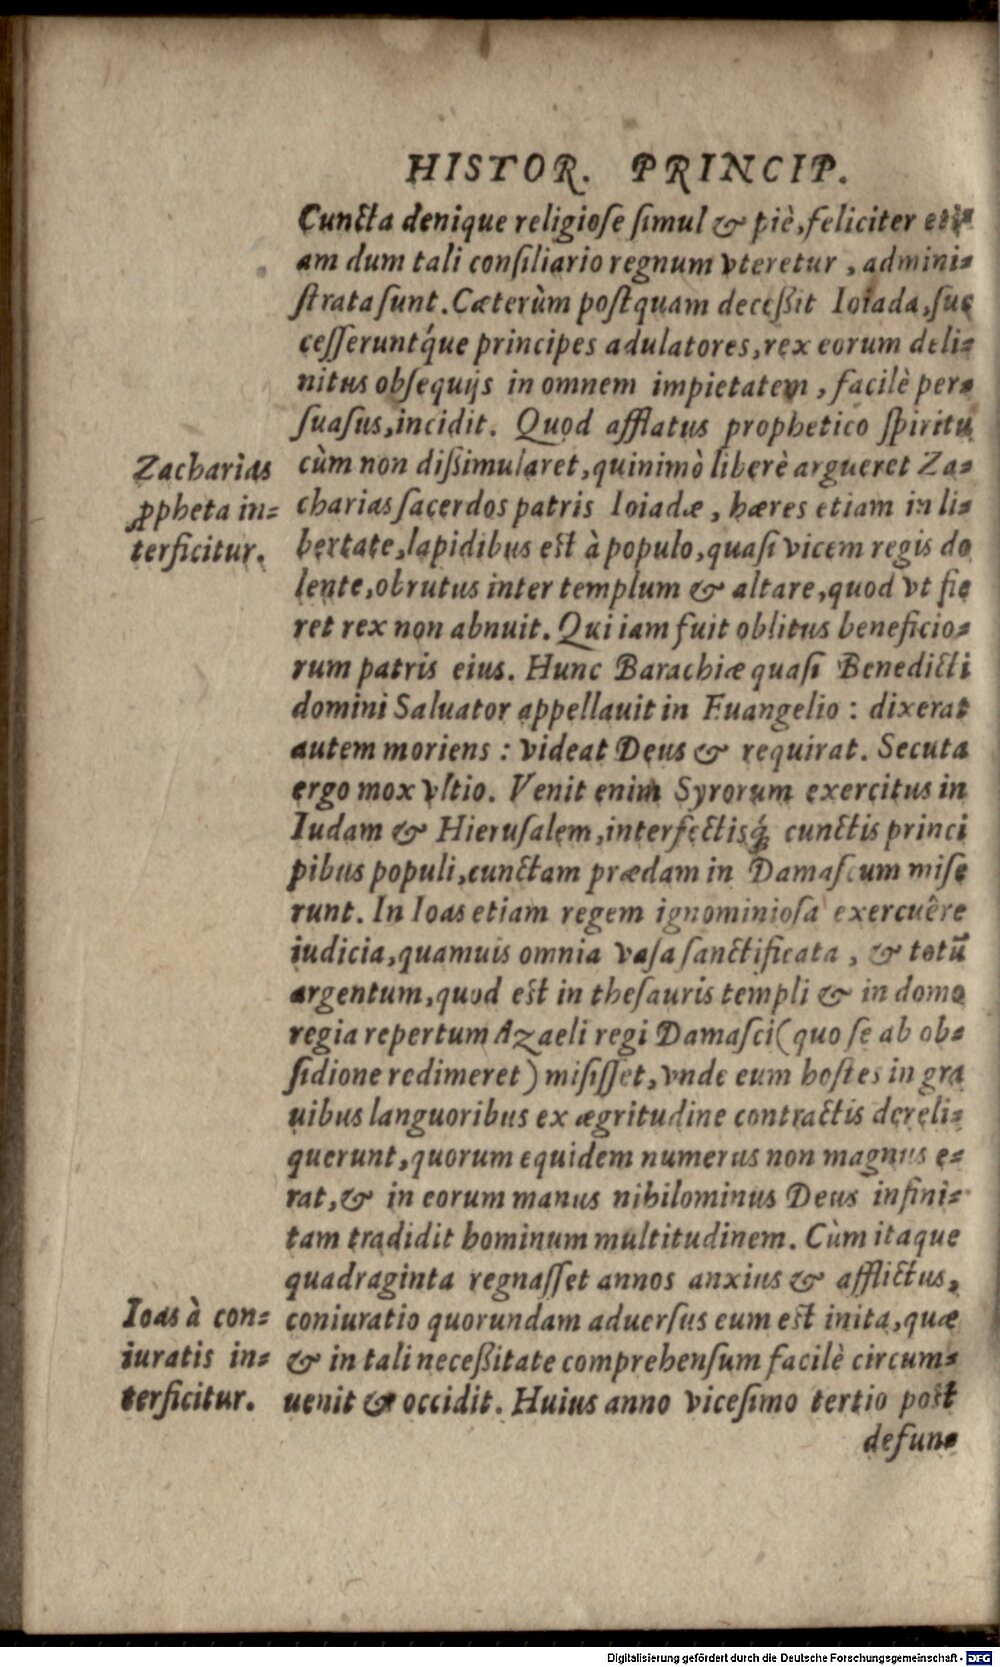 HISTOR. PRINCIP.
Cuncta denique religiose simul & piè, feliciter eti-
am dum tali consiliario regnum vteretur, admini-
strata sunt. Cæterùm postquam deceßit Ioiada, suc
cesseruntq́ue principes adulatores, rex eorum deli-
nitus obsequijs in omnem impietatem, facilè per-
suasus, incidit. Quod afflatus prophetico spiritu
Zacharias
ꝓpheta in-
terficitur.
cùm non dißimularet, quinimò liberè argueret Za-
charias sacerdos patris Ioiadæ, hæres etiam in li-
bertate, lapidibus est à populo, quasi vicem regis do
lente, obrutus inter templum & altare, quod vt fie
ret rex non abnuit. Qui iam fuit oblitus beneficio-
rum patris eius. Hunc Barachiæ quasi Benedicti
domini Saluator appellauit in Euangelio: dixerat
autem moriens: videat Deus & requirat. Secuta
ergo mox vltio. Venit enim Syrorum exercitus in
Iudam & Hierusalem, interfectisq́; cunctis princi
pibus populi, cunctam prædam in Damascum mise
runt. In Ioas etiam regem ignominiosa exercuêre
iudicia, quamuis omnia vasa sanctificata, & totū
argentum, quod est in thesauris templi & in domo
regia repertum Azaeli regi Damasci (quo se ab ob-
sidione redimeret) misisset, vnde eum hostes in gra
uibus languoribus ex ægritudine contractis dereli-
querunt, quorum equidem numerus non magnus e-
rat, & in eorum manus nihilominus Deus infini-
tam tradidit hominum multitudinem. Cùm itaque
quadraginta regnasset annos anxius & afflictus,
Ioas à con-
iuratis in-
terficitur.
coniuratio quorundam aduersus eum est inita, quæ
& in tali neceßitate comprehensum facilè circum-
uenit & occidit. Huius anno vicesimo tertio post
defun-
Digitalisierung gefördert durch die Deutsche Forschungsgemeinschaft - DFG